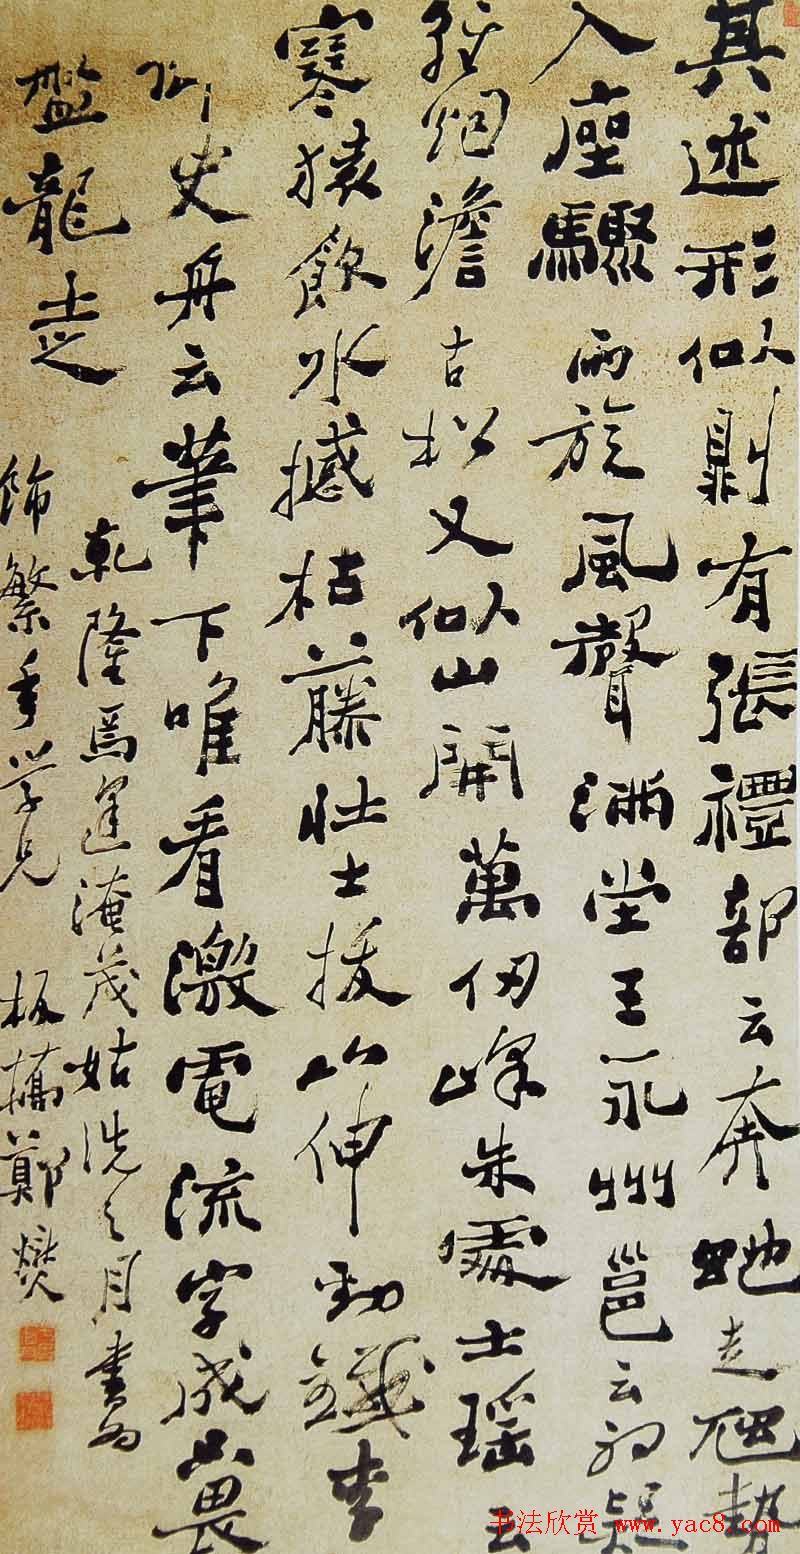 其述形似則有張禮部云奔虵走虺勢
入座驟雨旋風聲滿堂王永州邕云初疑
輕烟澹古松又似山開萬仞峰朱處士瑤云
寒猿飲水撼枯藤壯士拔山伸勁鐵李
御史舟云筆下唯看激電流字成只畏
盤龍走
乾隆焉逢淹茂姑洗之月書為
飾繁年學兄 板橋鄭燮
书法欣赏 www.yac8.com